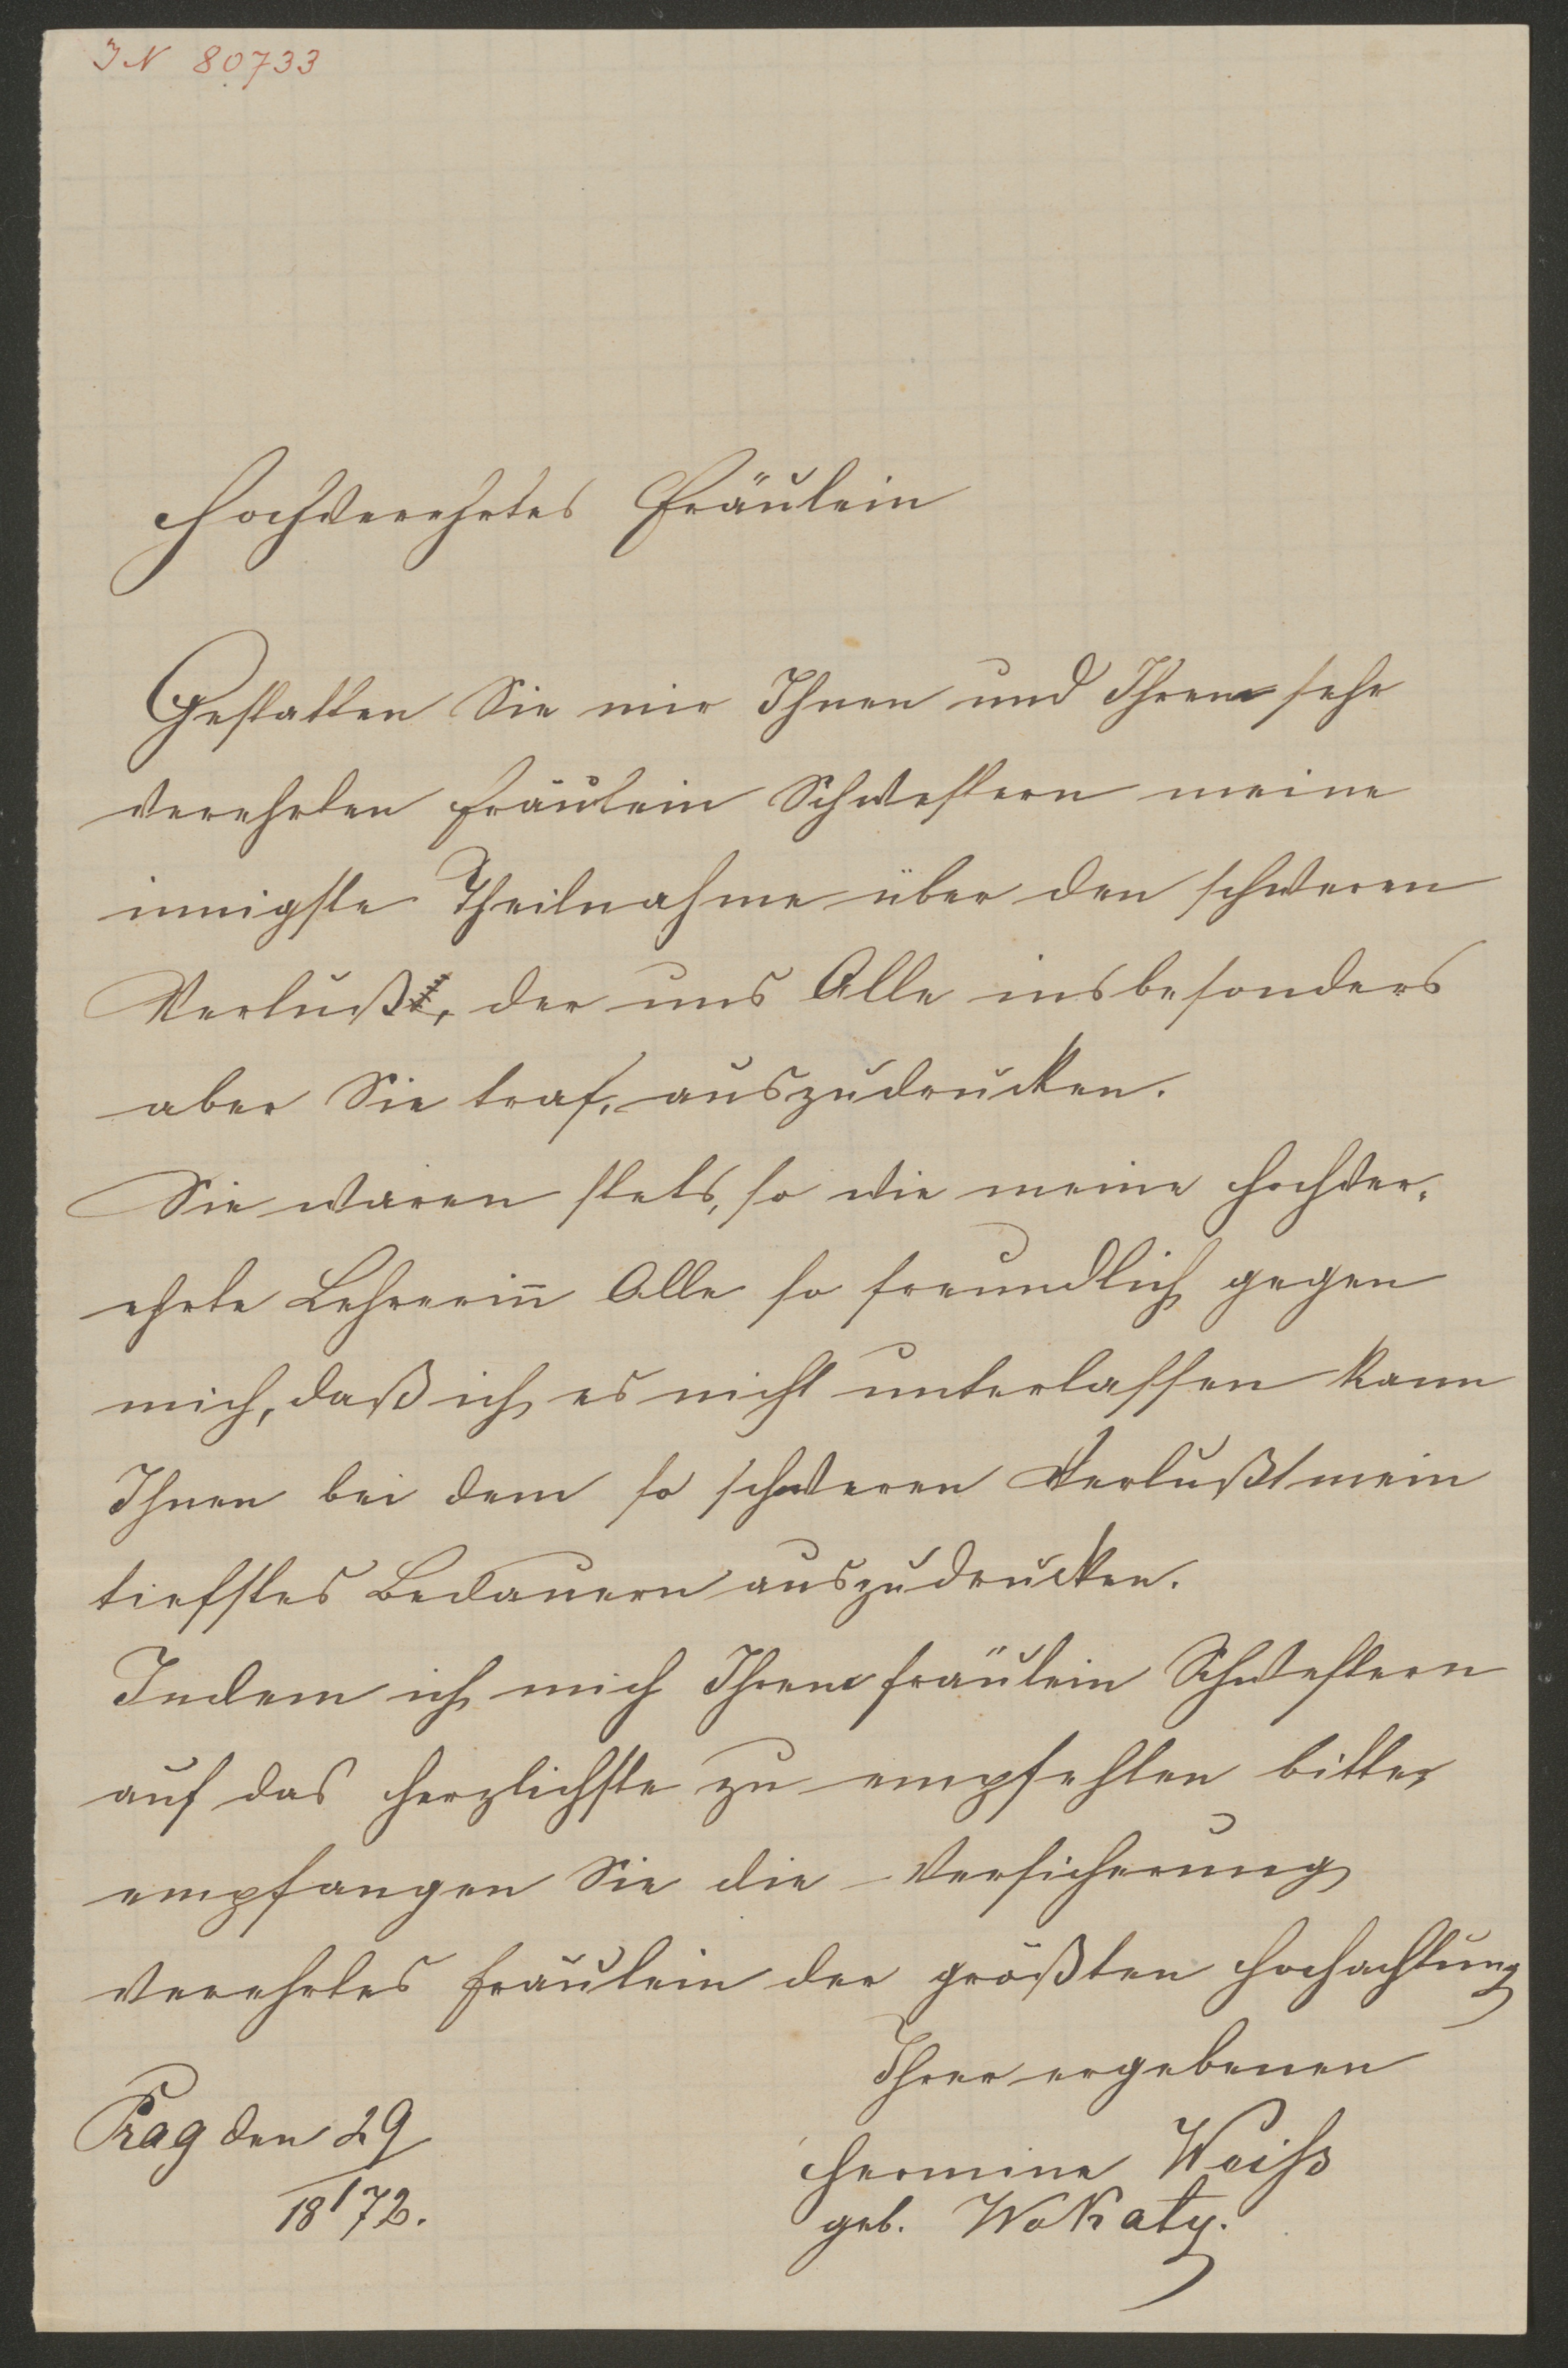 IN 80733
Hochverehrtes Fräulein
Gestatten Sie mir Ihnen und Ihren sehr
verehrten Fräulein Schwestern meine
innigste Theilnahme über den schweren
Verluß, der uns Alle insbesonders
aber Sie traf, auszudrucken.
Sie waren stets, so wie meine hochver-
ehrte Lehrerinn Alle so freundlich gegen
mich, daß ich es nicht unterlassen kann
Ihnen bei dem so schweren Verlußt mein
tiefstes Bedauern auszudrucken.
Indem ich mich Ihren Fräulein Schwestern
auf das herzlichste zu empfehlen bitte,
empfangen Sie die Versicherung
verehrtes Fräulein der größten Hochachtung
Ihrer ergebenen
Prag den 29/
Hermine Weiß
18 1 72.
geb. Wokaty.